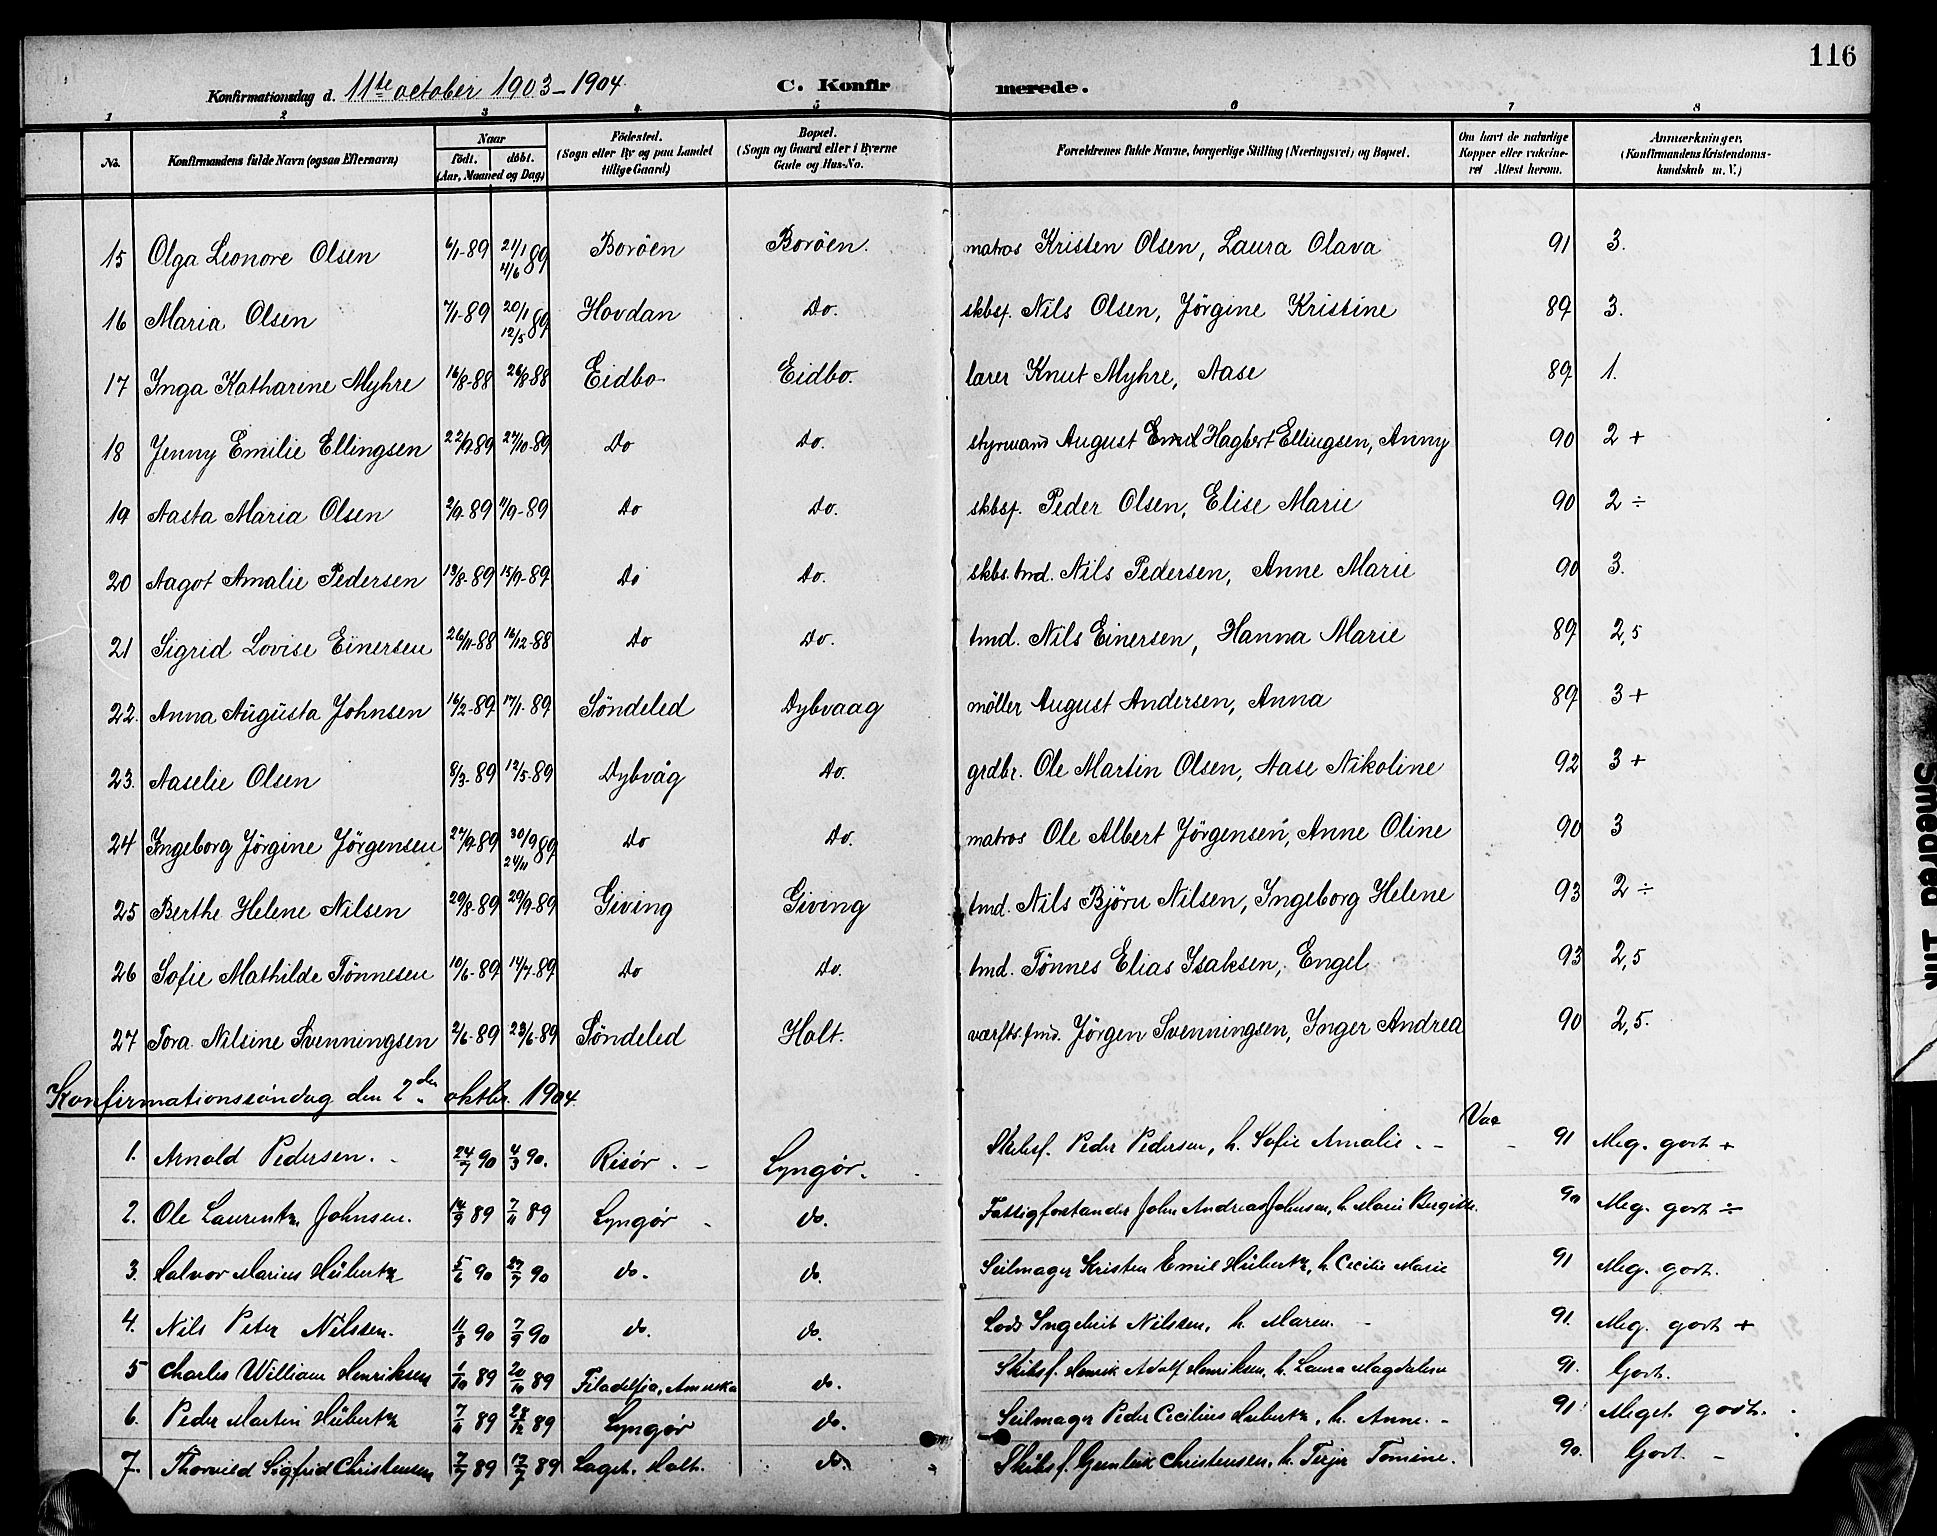 116
Konfirmationsdag d. 11te october 1903-1904 C. Konfirmerede.
1 2 3 4 5 6 7 8
No. Konfirmandens fulde Navn (ogsaa Efternavn) Naar födt. döbt. (Aar, Maaned og Dag) Födested. (Sogn eller By og paa Landet tillige Gaard) Bopæl. (Sogn og Gaard eller i Byerne Gade og Hus-No. Forældrenes fulde Navne, borgerlige Stilling (Næringsvei) og Bopæl. Om havt de naturlige Kopper eller vaccineret Attest herom. Anmærkninger. (Konfirmandens Kristendomskundskab m. V.)
15 Olga Leonore Olsen 6/1-89 21/1 4/6 89 Boröen Boröen. matros Kristen Olsen, Laura Olava 91 3.
16 Maria Olsen 7/1-89 20/1 12/5 89 Hovdan Do. skbsf. Nils Olsen, Jörgine Kristine 89 3.
17 Inga Katharine Myhre 16/8-88 26/8-88 Eidbo Eidbo. lærer Knut Myhre, Aase 89 1.
18 Jenny Emilie Ellingsen 22/9-89 27/10-89 Do Do. styrmand August Emil Hagbert Ellingsen, Anny 90 2 +
19 Aasta Maria Olsen 2/9-89 11/9-89 Do Do. skbsf. Peder Olsen, Elise Marie 90 2 ÷
20 Aagot Amalie Pedersen 13/8-89 15/9-89 Do Do. skbs.tmd. Nils Pedersen, Anne Marie 90 3.
21 Sigrid Lovise Einersen 26/11-88 16/12-88 Do Do. tmd. Nils Einersen, Hanna Marie 89 2,5
22. Anna Augusta Johnsen 16/2-89 17/1-89 Söndeled Dybvaag möller August Andersen, Anna 89 3 +
23. Aaselie Olsen 8/3-89 12/5-89 Dybvåg Do. grdbr. Ole Martin Olsen, Aase Nikoline 92 3 +
24 Ingeborg Jörgine Jörgensen 27/9-89 30/9 24/11 89 Do Do. matros Ole Albert Jörgensen, Anne Oline 90 3
25 Berthe Helene Nilsen 29/8-89 29/9-89 Giving Giving tmd. Nils Björn Nilsen, Ingeborg Helene 93 2 ÷
26 Sofie Mathilde Tönnesen 10/6-89 14/7-89 Do Do. tmd. Tönnes Elias Isaksen, Engel 93 2,5
27 Tora Nilsine Svenningsen 2/6-89 23/6-89 Söndeled Holt. værfts.tmd. Jörgen Svenningsen, Inger Andrea 90 2,5.
Konfirmationssöndag den 2den oktbr. 1904
Vac
1. Arnold Pedersen. 24/7 90 4/3 90. Risör. Lyngör. Skibsf. Peder Pedersen, h. Sofie Amalie. 91 Meg. godt +
2. Ole Laurentz Johnsen. 14/9 89 7/11 89 Lyngör do. Fattigforstander John Andreas Johnsen, h. Marie Bergitte. 90 Meg. godt ÷
3. Halvor Marius Hübertz 5/6 90 27/7 90 do. do. Seilmager Kristen Emil Hübertz, h. Cecilie Marie 91 Meg. godt.
4. Nils Peter Nilssen. 11/8 90 7/9 90 do. do. Lods Ingebrit Nilssen, h. Maren. 91. Meg. godt +
5 Charles William Henriksen 1/10 89 20/10 89 Filadelfia, Amerika do. Skibsf. Henrik Adolf Henriksen, h. Laura Magdalene 91. Godt.
6. Peder Martin Hübertz 7/11 89 28/12 89 Lyngör do. Seilmager Peder Cecilius Hübertz, h. Anne. 91 Meget godt.
7. Thorvild Sigfrid Christensen 2/7 89 12/7 89 Laget. Holt. do. Skibsf. Gunleik Christensen, h. Terjer Tomine. 90. Godt.
Smedrud Trk